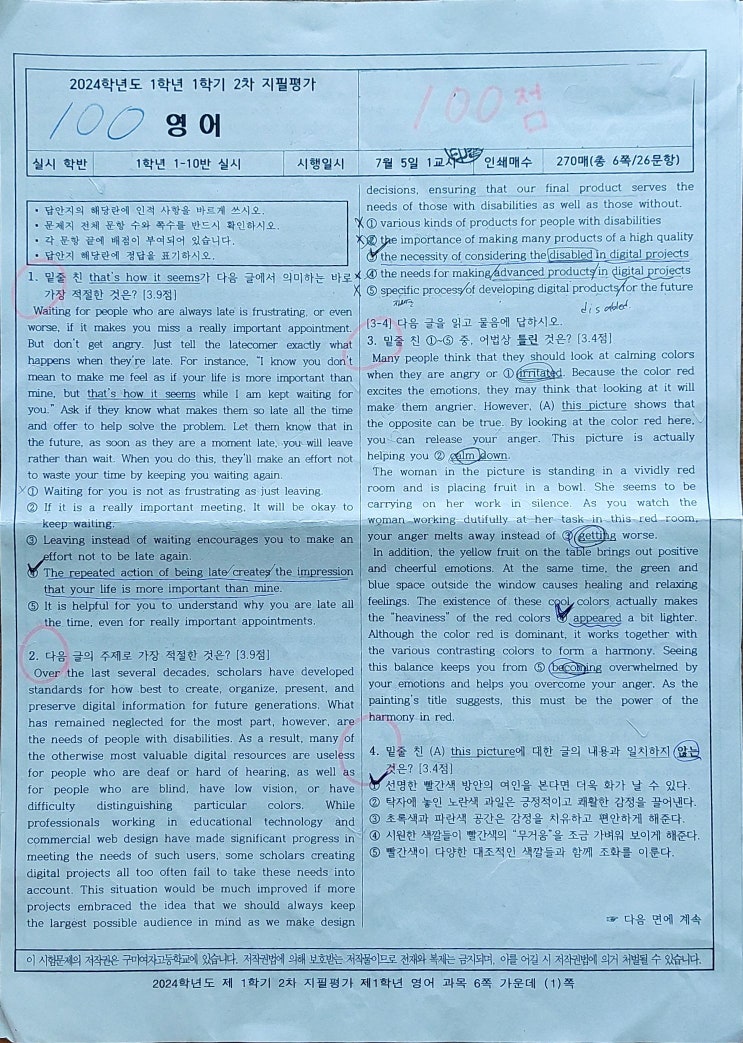 2024학년도 1학년 1학기 2차 지필평가
100 영어
100점
실시 학반 1학년 1-10반 실시 시행일시 7월 5일 1교시 인쇄매수 270매(총 6쪽/26문항)
• 답안지의 해당란에 인적 사항을 바르게 쓰시오.
• 문제지 전체 문항 수와 쪽수를 반드시 확인하시오.
• 각 문항 끝에 배점이 부여되어 있습니다.
• 답안지 해당란에 정답을 표기하시오.
1. 밑줄 친 that's how it seems가 다음 글에서 의미하는 바로
가장 적절한 것은? [3.9점]
Waiting for people who are always late is frustrating, or even
worse, if it makes you miss a really important appointment.
But don't get angry. Just tell the latecomer exactly what
happens when they're late. For instance, "I know you don't
mean to make me feel as if your life is more important than
mine, but that's how it seems while I am kept waiting for
you." Ask if they know what makes them so late all the time
and offer to help solve the problem. Let them know that in
the future, as soon as they are a moment late, you will leave
rather than wait. When you do this, they'll make an effort not
to waste your time by keeping you waiting again.
① Waiting for you is not as frustrating as just leaving.
② If it is a really important meeting, It will be okay to
keep waiting.
③ Leaving instead of waiting encourages you to make an
effort not to be late again.
④ The repeated action of being late creates the impression
that your life is more important than mine.
⑤ It is helpful for you to understand why you are late all
the time, even for really important appointments.
2. 다음 글의 주제로 가장 적절한 것은? [3.9점]
Over the last several decades, scholars have developed
standards for how best to create, organize, present, and
preserve digital information for future generations. What
has remained neglected for the most part, however, are
the needs of people with disabilities. As a result, many of
the otherwise most valuable digital resources are useless
for people who are deaf or hard of hearing, as well as
for people who are blind, have low vision, or have
difficulty distinguishing particular colors. While
professionals working in educational technology and
commercial web design have made significant progress in
meeting the needs of such users, some scholars creating
digital projects all too often fail to take these needs into
account. This situation would be much improved if more
projects embraced the idea that we should always keep
the largest possible audience in mind as we make design
decisions, ensuring that our final product serves the
needs of those with disabilities as well as those without.
① various kinds of products for people with disabilities
② the importance of making many products of a high quality
③ the necessity of considering the disabled in digital projects
④ the needs for making advanced products in digital projects
⑤ specific process of developing digital products for the future
disabled
[3-4] 다음 글을 읽고 물음에 답하시오.
3. 밑줄 친 ①~⑤ 중, 어법상 틀린 것은? [3.4점]
Many people think that they should look at calming colors
when they are angry or ① irritated. Because the color red
excites the emotions, they may think that looking at it will
make them angrier. However, (A) this picture shows that
the opposite can be true. By looking at the color red here,
you can release your anger. This picture is actually
helping you ② calm down.
The woman in the picture is standing in a vividly red
room and is placing fruit in a bowl. She seems to be
carrying on her work in silence. As you watch the
woman working dutifully at her task in this red room,
your anger melts away instead of ③ getting worse.
In addition, the yellow fruit on the table brings out positive
and cheerful emotions. At the same time, the green and
blue space outside the window causes healing and relaxing
feelings. The existence of these cool colors actually makes
the "heaviness" of the red colors ④ appeared a bit lighter.
Although the color red is dominant, it works together with
the various contrasting colors to form a harmony. Seeing
this balance keeps you from ⑤ becoming overwhelmed by
your emotions and helps you overcome your anger. As the
painting's title suggests, this must be the power of the
harmony in red.
4. 밑줄 친 (A) this picture에 대한 글의 내용과 일치하지 않는
것은? [3.4점]
① 선명한 빨간색 방안의 여인을 본다면 더욱 화가 날 수 있다.
② 탁자에 놓인 노란색 과일은 긍정적이고 쾌활한 감정을 끌어낸다.
③ 초록색과 파란색 공간은 감정을 치유하고 편안하게 해준다.
④ 시원한 색깔들이 빨간색의 "무거움"을 조금 가벼워 보이게 해준다.
⑤ 빨간색이 다양한 대조적인 색깔들과 함께 조화를 이룬다.
☞ 다음 면에 계속
이 시험문제의 저작권은 구미여자고등학교에 있습니다. 저작권법에 의해 보호받는 저작물이므로 전재와 복제는 금지되며, 이를 어길 시 저작권법에 의거 처벌될 수 있습니다.
2024학년도 제 1학기 2차 지필평가 제1학년 영어 과목 6쪽 가운데 (1)쪽